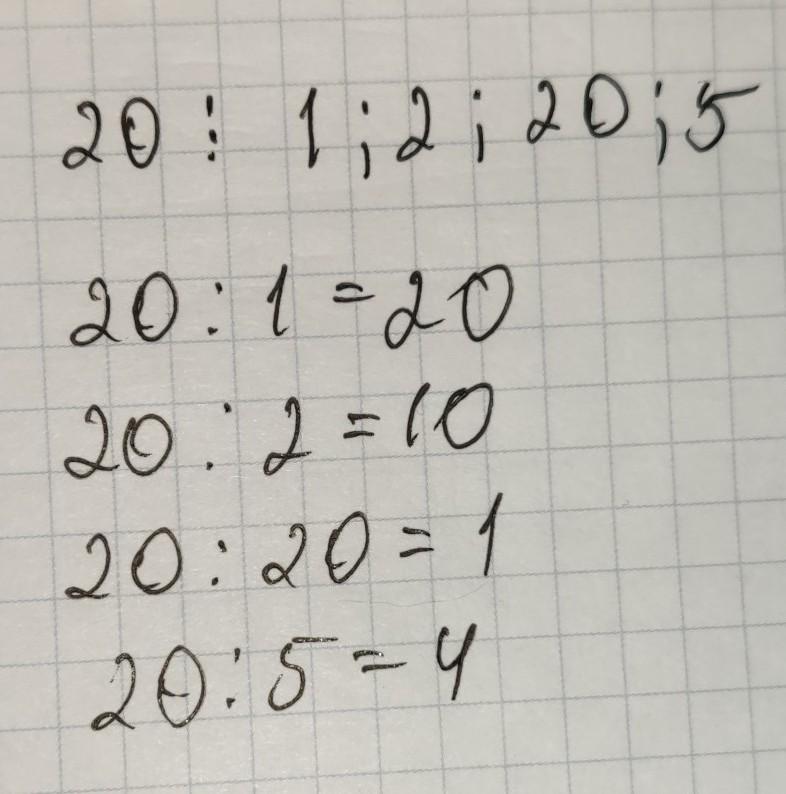 20 ⋮ 1 ; 2 ; 20 ; 5
20 : 1 = 20
20 : 2 = 10
20 : 20 = 1
20 : 5 = 4